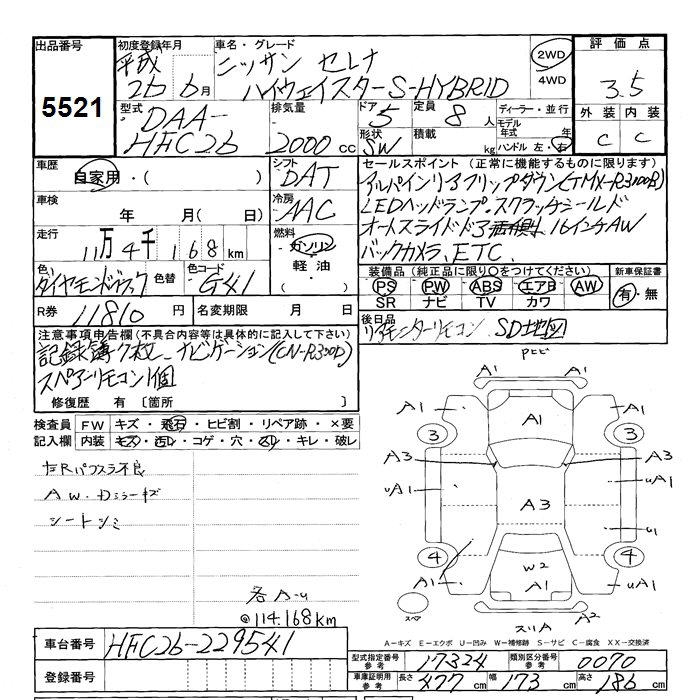 出品番号
5521
初度登録年月
平成
26年 6月
車名・グレード
ニッサン セレナ
ハイウェイスターS-HYBRID
2WD
4WD
評価点
3.5
型式
DAA-
HFC26
排気量
2000 cc
ドア
5
形状
SW
定員
8人
積載
kg
ディーラー・並行
モデル
年式 年
ハンドル 左・右
外装 内装
C C
車歴
自家用・( )
シフト
DAT
車検
年 月( 日)
冷房
AAC
走行
11万4千168km
燃料
ガソリン
軽油
・( )
色
ダイヤモンドブラック
色替
色コード
G41
R券 11810円
名変期限 月 日
セールスポイント (正常に機能するものに限ります)
アルパインリアフリップダウン(TMX-R3000B)
LEDヘッドランプ.スクラッチシールド
オートスライドドア両側.16インチAW
バックカメラ.ETC.
装備品 (純正品に限り○をつけてください)
PS PW ABS エアB AW
SR ナビ TV カワ
新車保証書
有・無
後日品
リアモニターリモコン SD地図
注意事項申告欄 (不具合内容等は具体的に記入して下さい)
記録簿7枚 ナビゲーション(CN-R300D)
スペアーリモコン1個
修復歴 有 〔箇所 〕
検査員
記入欄
FW キズ・飛石・ヒビ割・リペア跡・×要
内装 キズ・汚レ・コゲ・穴・スレ・キレ・破レ
左Rパワスラ不良
AW.Dミラーキズ
シートシミ
各A-u
@114.168km
A1
A1
A1
3
3
A3
A3
uA1
uA1
A3
u1
4
4
W2
A1
A1
uA1
スペア
スリA
A2
A-キズ E-エクボ U-凹み W-補修跡 S-サビ C-腐食 XX-交換済
車台番号 HFC26-229541
登録番号
型式指定番号
参考
17324
類別区分番号
参考
0070
車庫証明用
参考
長さ 477cm 幅 173cm 高さ 186cm